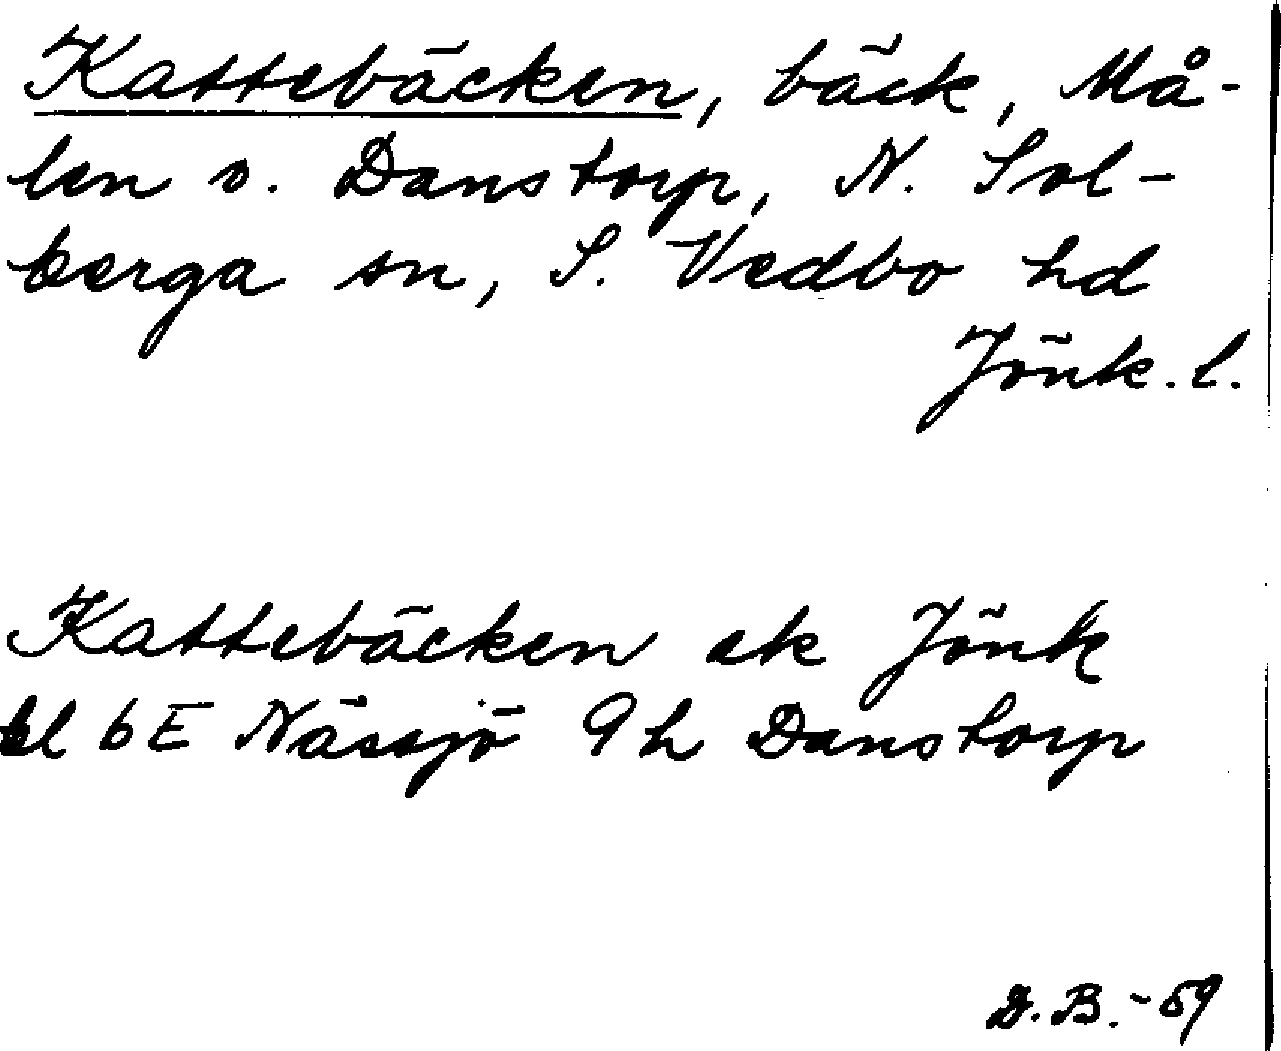 Kattebäcken, bäck, Må-
len o. Danstorp, N. Sol-
berga sn, S. Vedbo hd
Jönk. l.
Kattebäcken ek Jönk
bl 6E Nässjö 9h Danstorp
D.B.-59